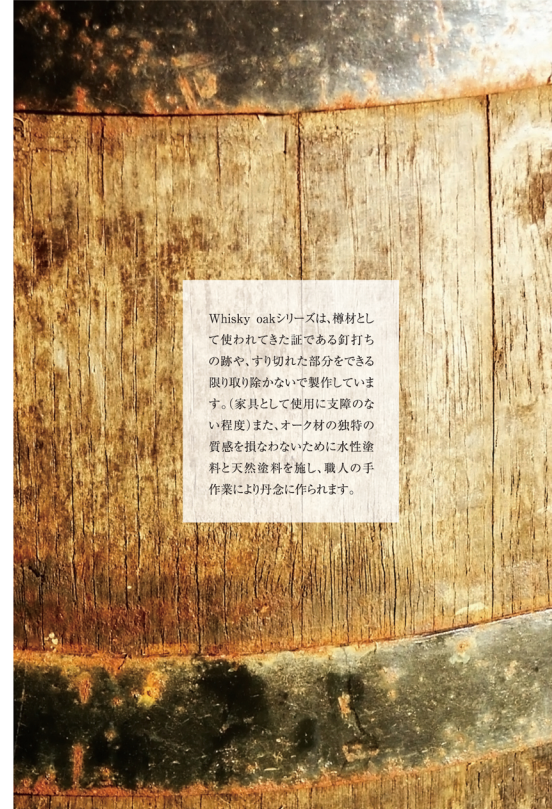 Whisky oakシリーズは、樽材とし
て使われてきた証である釘打ち
の跡や、すり切れた部分をできる
限り取り除かないで製作していま
す。（家具として使用に支障のな
い程度）また、オーク材の独特の
質感を損なわないために水性塗
料と天然塗料を施し、職人の手
作業により丹念に作られます。